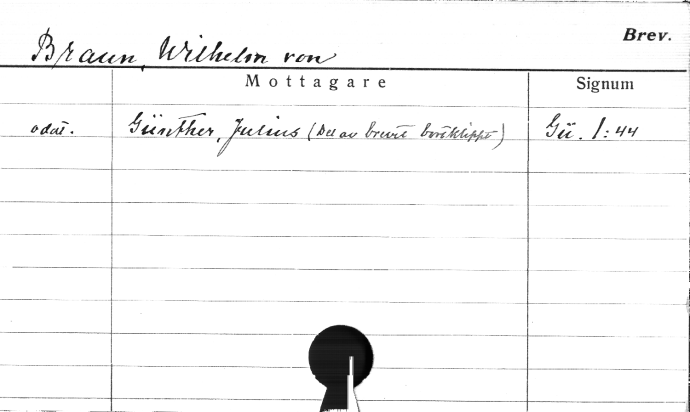 Brev.
Braun, Wilhelm von
Mottagare Signum
odat. Günther, Julius (Del av brevet bortklippt) Gü. 1:44